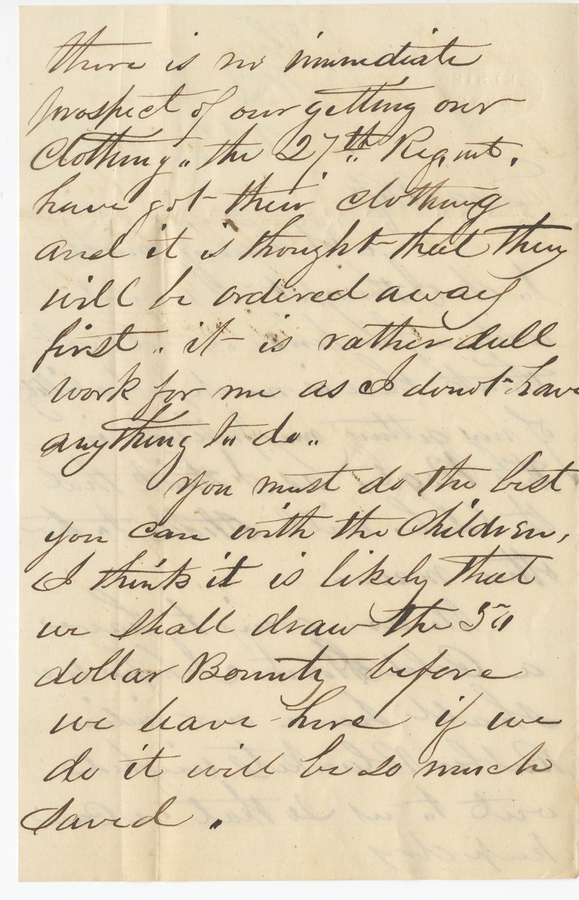 there is no immediate
prospect of our getting our
Clothing,, the 27th Regmt.
have got their clothing
and it is thought that they
will be ordered away
first. it is rather dull
work for me as I do not have
anything to do..
You must do the best
you can with the Children,
I think it is likely that
we shall draw the 50
dollar Bounty before
we leave here if we
do it will be so much
saved.